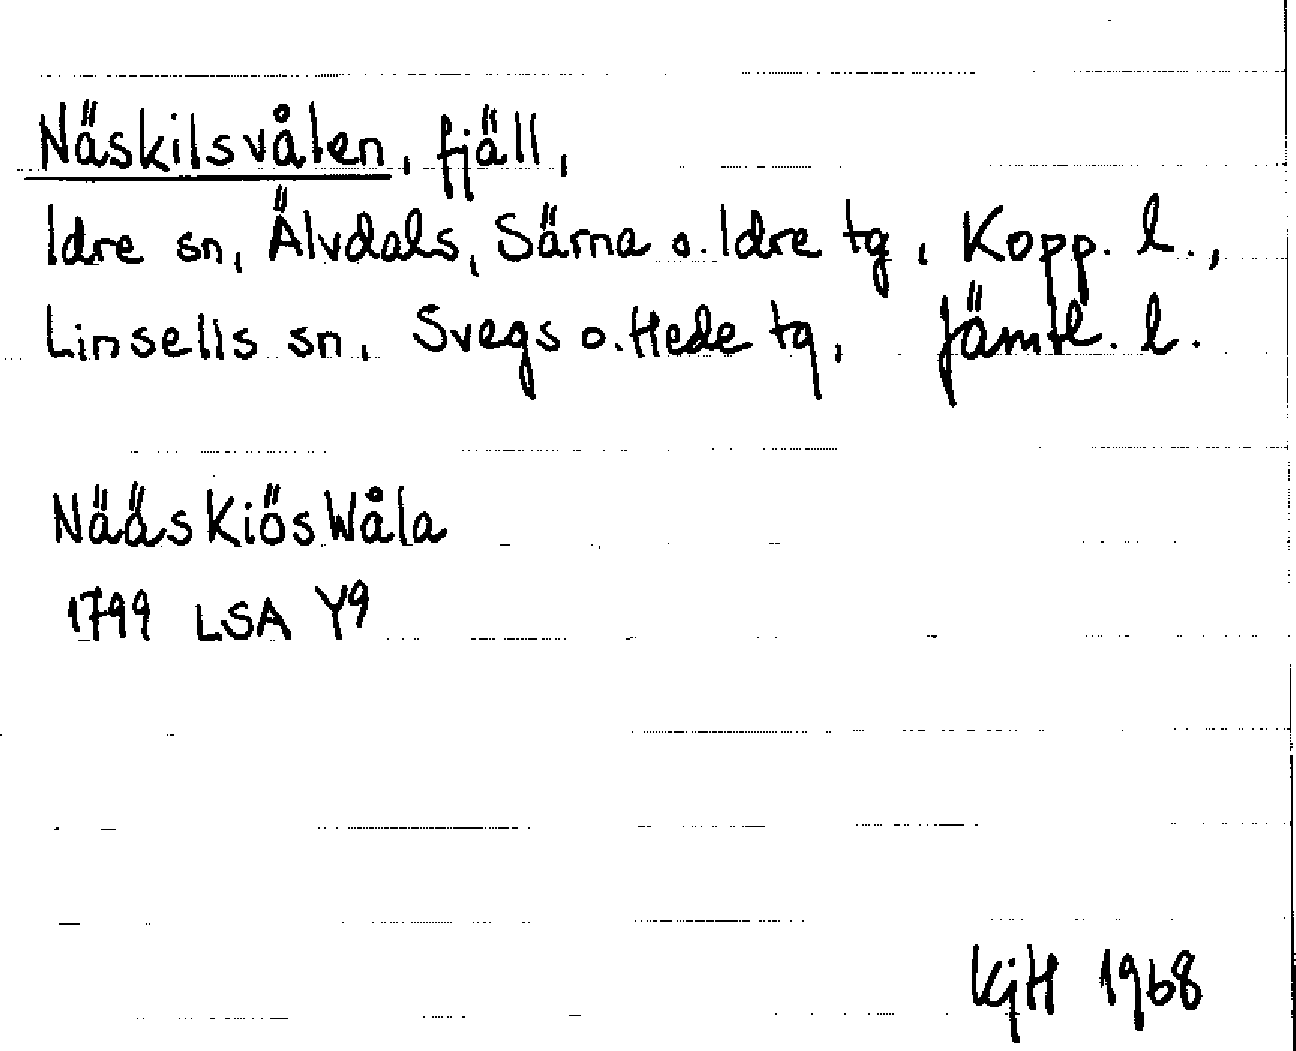 Näskilsvålen, fjäll,
Idre sn, Älvdals, Särna o. Idre tg, Kopp. l.,
Linsells sn, Svegs o. Hede tg, Jämtl. l.
NääsKiösWåla
1799 LSA Y9
KjH 1968